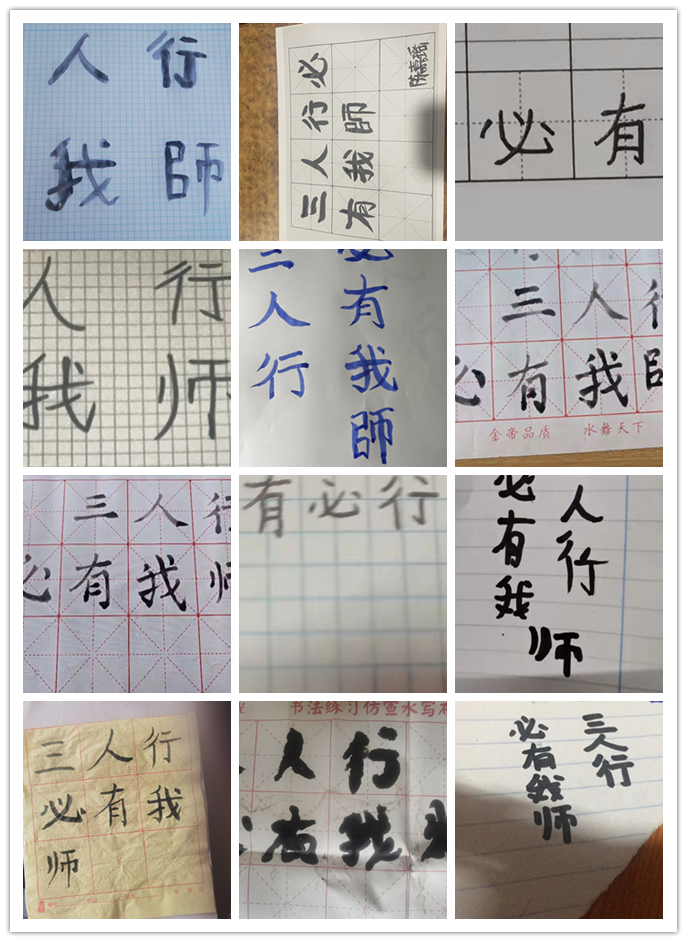 人行
我師
三人行必
有我師
必有
人行
我师
三人行
必有我師
三人行
必有我師
金帝品质 水舞天下
三人行
必有我师
有必行
人行
必有我师
三人行
必有我
师
书法练习仿宣水写布
人行
必有我师
三人行
必有我师